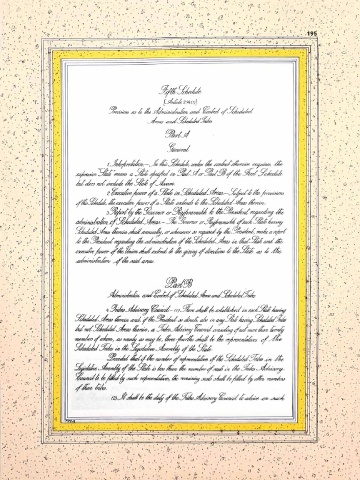 195
Fifth Schedule
[Article 244(1)]
Provisions as to the Administration and Control of Scheduled
Areas and Scheduled Tribes
Part A
General
1. Interpretation.— In this Schedule, unless the context otherwise requires, the
expression "State" means a State specified in Part A or Part B of the First Schedule
but does not include the State of Assam.
2. Executive power of a State in Scheduled Areas.— Subject to the provisions
of this Schedule, the executive power of a State extends to the Scheduled Areas therein.
3. Report by the Governor or Rajpramukh to the President regarding the
administration of Scheduled Areas.— The Governor or Rajpramukh of each State having
Scheduled Areas therein shall annually, or whenever so required by the President, make a report
to the President regarding the administration of the Scheduled Areas in that State and the
executive power of the Union shall extend to the giving of directions to the State as to the
administration of the said areas.
Part B
Administration and Control of Scheduled Areas and Scheduled Tribes
4. Tribes Advisory Council.— (1) There shall be established in each State having
Scheduled Areas therein and, if the President so directs, also in any State having Scheduled Tribes
but not Scheduled Areas therein, a Tribes Advisory Council consisting of not more than twenty
members of whom, as nearly as may be, three-fourths shall be the representatives of the
Scheduled Tribes in the Legislative Assembly of the State:
Provided that if the number of representatives of the Scheduled Tribes in the
Legislative Assembly of the State is less than the number of seats in the Tribes Advisory
Council to be filled by such representatives, the remaining seats shall be filled by other members
of those tribes.
(2) It shall be the duty of the Tribes Advisory Council to advise on such